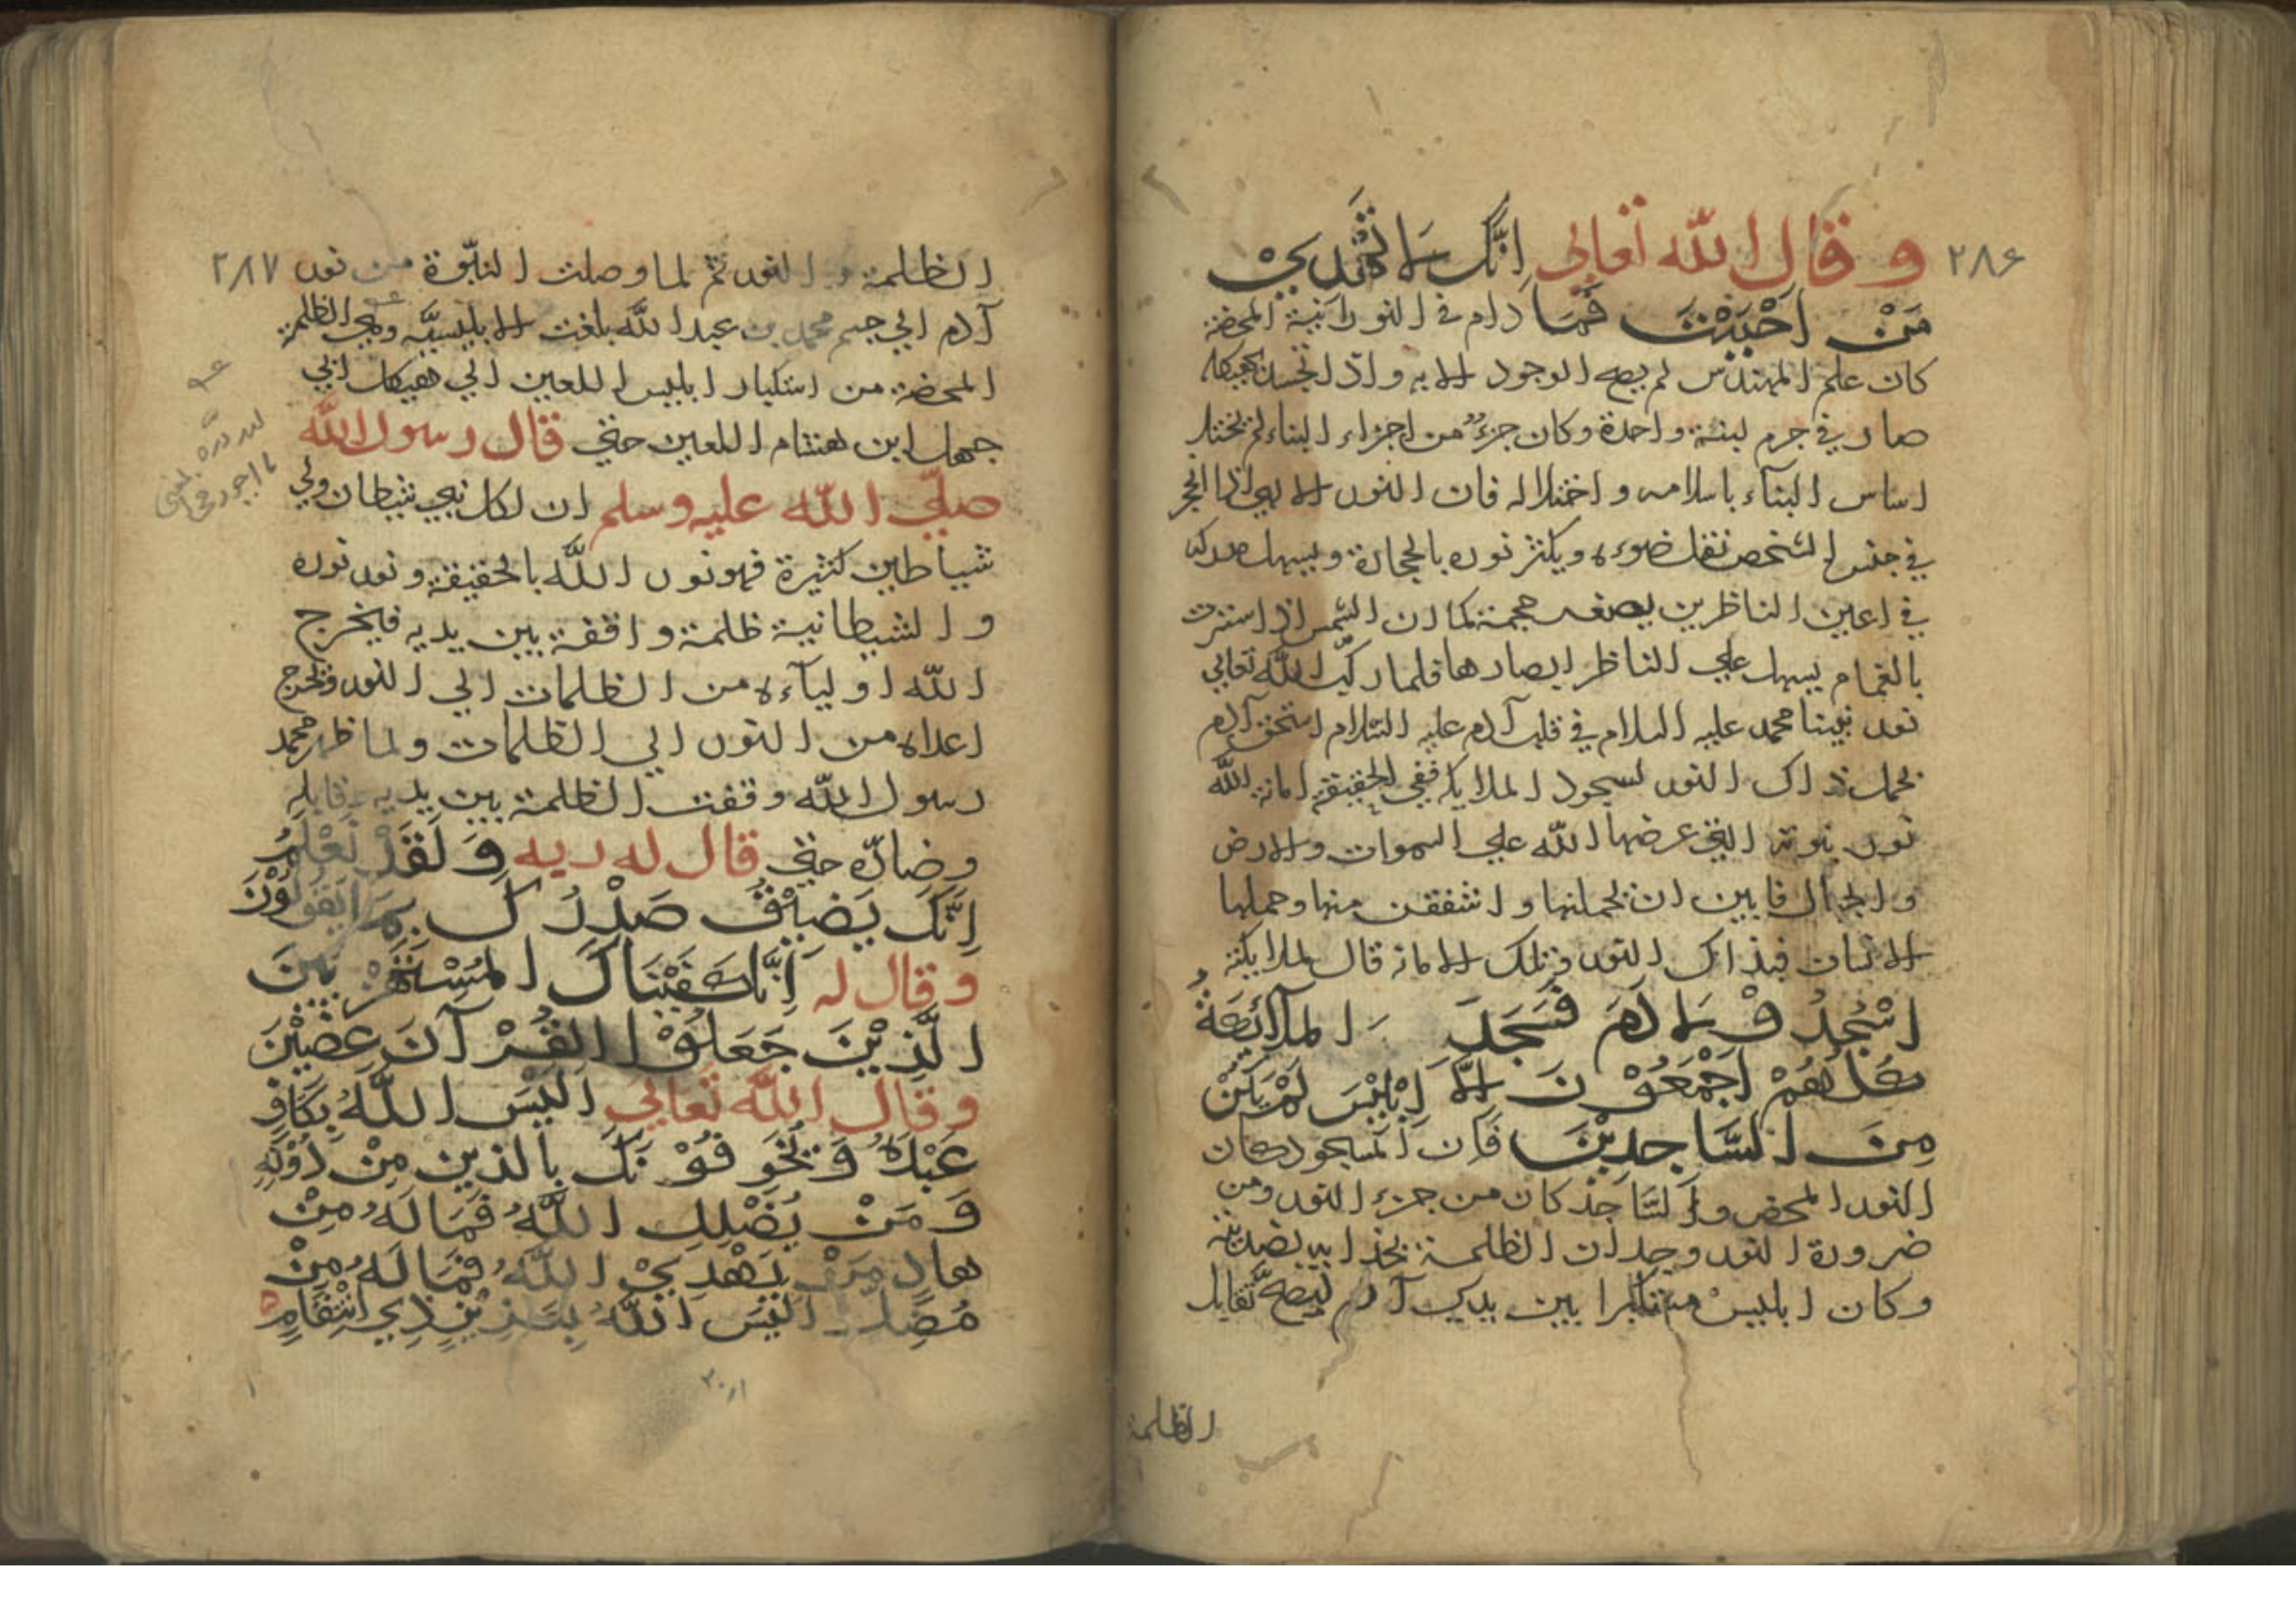 ٢٨۶
وقال الله تعالى اِنَّكَ لَا تَهْدِيْ
مَنْ اَحْبَبْتَ فَمَا دام في النورانية المحضة
كان علم المهندس لم يصح الوجود الا به واذا تجسد بهيكله
صار في جرم لبنة واحدة وكان جزءٌ من اجزاء البناء لم يختل
اساس البناء باسلامه واختلاله فان النور الالهي اذا انجر
في جنس الشخص نقل ضوءه ويكثر نوره بالحجارة ويسهل
في اعين الناظرين يصغر حجمة كما ان الشمس اذا استترت
بالغمام يسهل علي الناظر ابصارها فلما ركّب الله تعالي
نور نبينا محمد عليه السلام في قلب آدم عليه السّلام استحق آدم
بحمل ذاك النور لسجود الملايكة ففي الحقيقة امانة الله
نور نبوته التي عرضها الله علي السموات والارض
والجبال فابين ان يحملنها واشفقن منها وحملها
الانسان فبذاك النور وتلك الامانة قال لملايكته
اسْجُدُوْ لِاٰدَمَ فَسَجَدَ الملآئكةُ
كُلُّهُمْ اَجْمَعُوْنَ اِلّا اِبْلِيْسَ لَمْ يَكُنْ
مِنَ السَّاجِدِيْنَ فَان المسجود كان
النور المحض والسّاجد كان من جزء النور ومن
ضرورة النور وجدان الظلمة بحذايه بضديته
وكان ابليس متكبرا بين يدي آدم ليصحّ تقابل
الظلمة
٢٨٧
الظلمة والنور ثم لما وصلت النبّوة من نور
آدم الي جسم محمد بن عبد الله بلغت الابليسيّه وهي الظلمة
المحضة من استكبار ابليس اللعين الي هيكل ابي
جهل ابن هشام اللعين حتي قال رسول الله
صلّي الله عليه وسلم ان لكل نبي شيطان ولي
شياطين كثيرة فهو نور الله بالحقيقة ونور نوره
والشيطانية ظلمة واقفة بين يديه فيخرج
الله اولياءه من الظلمات الي النور ويخرج
اعداه من النور الي الظلمات ولما ظهر محمد
رسول الله وقفت الظلمة بين يديه وقابله
وضادّه حتي قال له ربه وَلَقَدْ نَعْلَمُ
اِنَّكَ يَضِيْقُ صَدْرُكَ بِمَا يَقُوْلُوْنَ
وقال له اِنَّا كَفَيْنَاكَ المُسْتَهْزِيْنَ
الَّذِيْنَ جَعَلُوْا القُرْآنَ عِضِيْنَ
وقال الله تعالي اَلَيْسَ اللَّهُ بِكَافٍ
عَبْدَهُ وَيُخَوِّفُوْنَكَ بالذين مِنْ دُوْنِهِ
وَمَنْ يُضْلِلِ اللَّهُ فَمَا لَهُ مِنْ
هادٍ مَنْ يَهْدِيْ اللَّهُ فَمَا لَهُ مِنْ
مُضِلٍّ اَلَيْسَ اللَّهُ بِعَزِيْزٍ ذِي انْتِقَامٍ